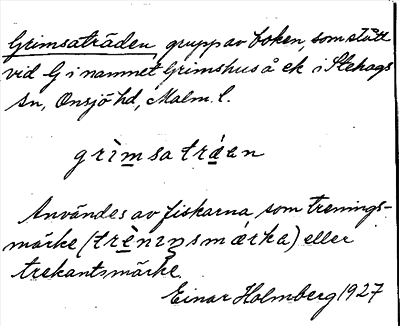 Grimsaträden, grupp av boken, som stått
vid G i namnet Grimshus å ek i Stehags
sn, Onsjö hd, Malm. l.
grìmsa tráan
Användes av fiskarna som trenings-
märke (trènιŋsmærka) eller
trekantsmärke
Einar Holmberg 1927